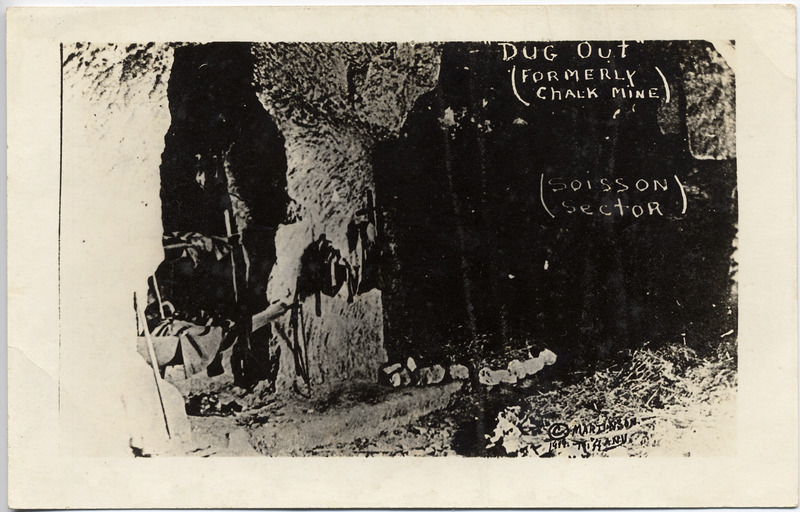 "DUG OUT"
(FORMERLY
CHALK MINE)
(SOISSON
SECTOR)
©MARTINSON